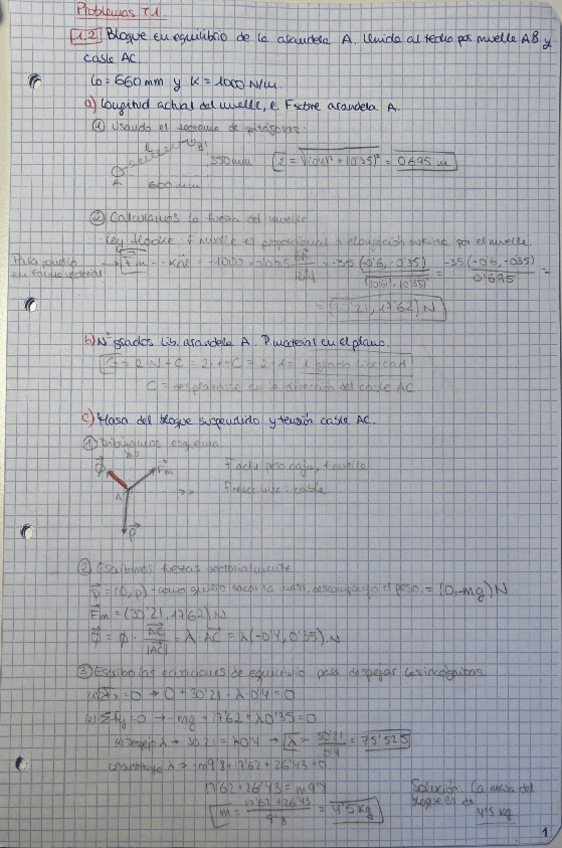 Problemas T.1.
1.2 Bloque en equilibrio de la arandela A. Unida al techo por muelle AB y
cable AC.
l0 = 660mm y K = 1000 N/m.
a) Longitud actual del muelle, e. F sobre arandela A.
① Usando el teorema de pitágoras:
350mm
A
600mm
= 0'695 m
② Calculamos la fuerza del muelle.
Ley Hooke: F muelle es proporcional a elongación sufrida por el muelle.
-35 (0'6, -0'35)
-35(-0'6, -0'35)
0'695
= (30'21, 17'62) N
b) Nº grados lib. arandela A. P. material en el plano.
G = 2·N - C = 2·1 - C = 2 - 1 = 1 grado libertad
C = desplazarse en la dirección del cable AC
c) Masa del bloque suspendido y tensión cable AC.
① Dibujamos esquema.
Fm
F activ: peso caja, F muelle
A
F reactiva: cable
P
② Escribimos fuerzas vectorialmente
P = (0, p) → como quiero sacar la masa, descompongo el peso. = (0, -mg) N
Fm = (30'21, 17'62) N
= λ · AC = λ (-0'4, 0'35) N
③ Escribo las ecuaciones de equilibrio para despejar las incógnitas
ΣFx = 0 → 0 + 30'21 - λ·0'4 = 0
ΣFy = 0 → -mg + 17'62 + λ0'35 = 0
despejo λ → 30'21 = λ0'4 → λ = 30'21 / 0'4 = 75'525
λ → -m9'8 + 17'62 + 26'43 = 0
17'62 + 26'43 = m9'8
m = 17'62 + 26'43 / 9'8 = 4'5 kg
Solución. La masa del
bloque es de
4'5 kg
1